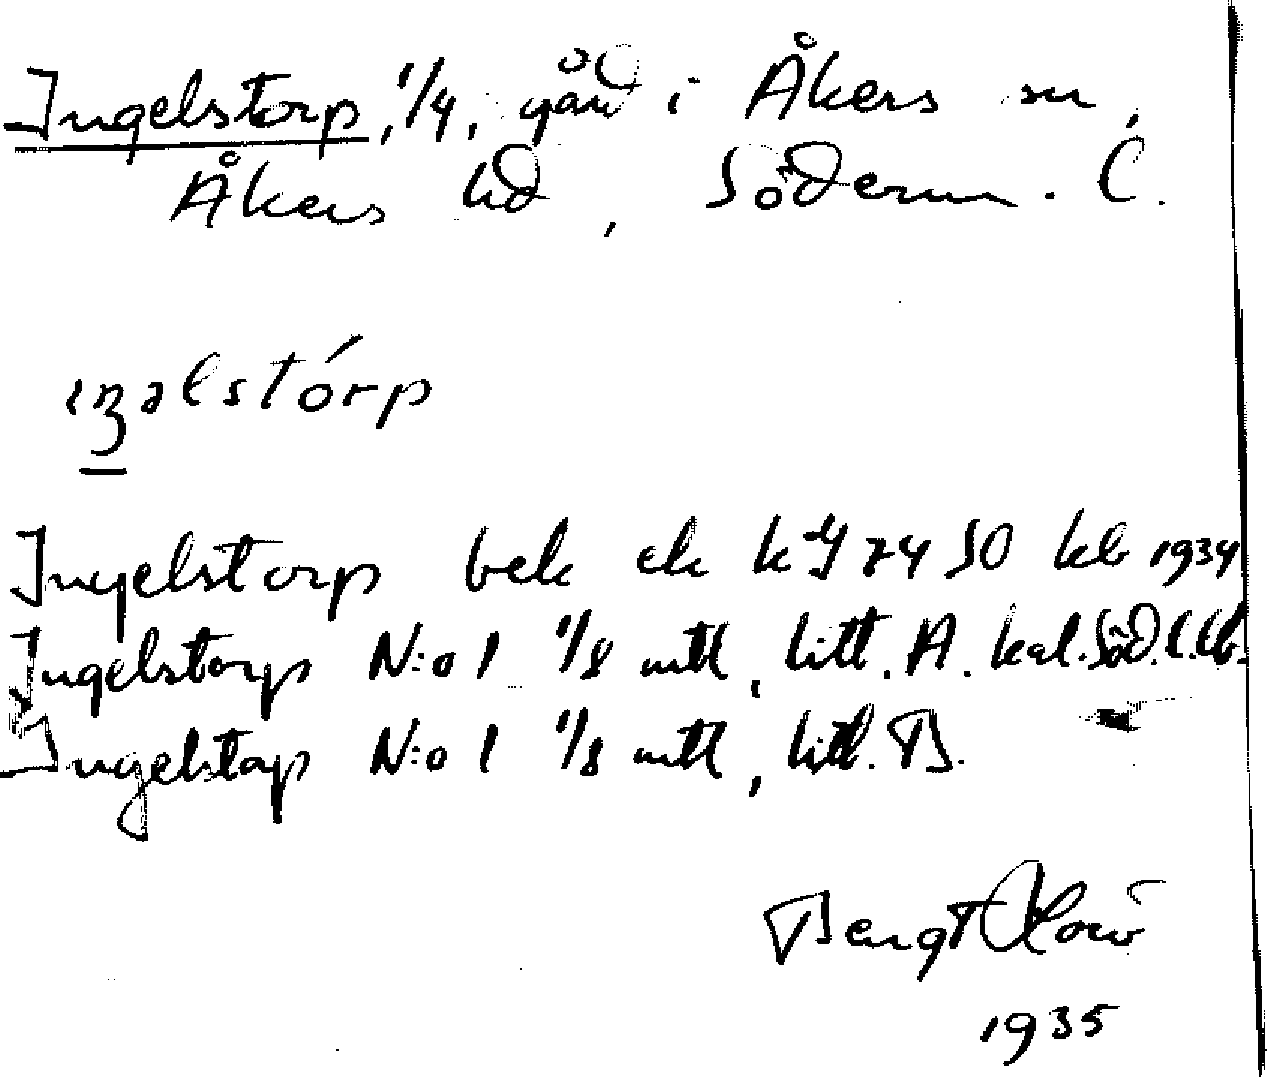 Ingelstorp, 1/4, gård i Åkers sn,
Åkers hd, Söderm. l.
Ingelstorp bek ek 74 SO kb 1934
Ingelstorp N:o 1 1/8 mtl, litt. A. Söd. l.
Ingelstorp N:o 1 1/8 mtl, litt. B.
Bengt
1935